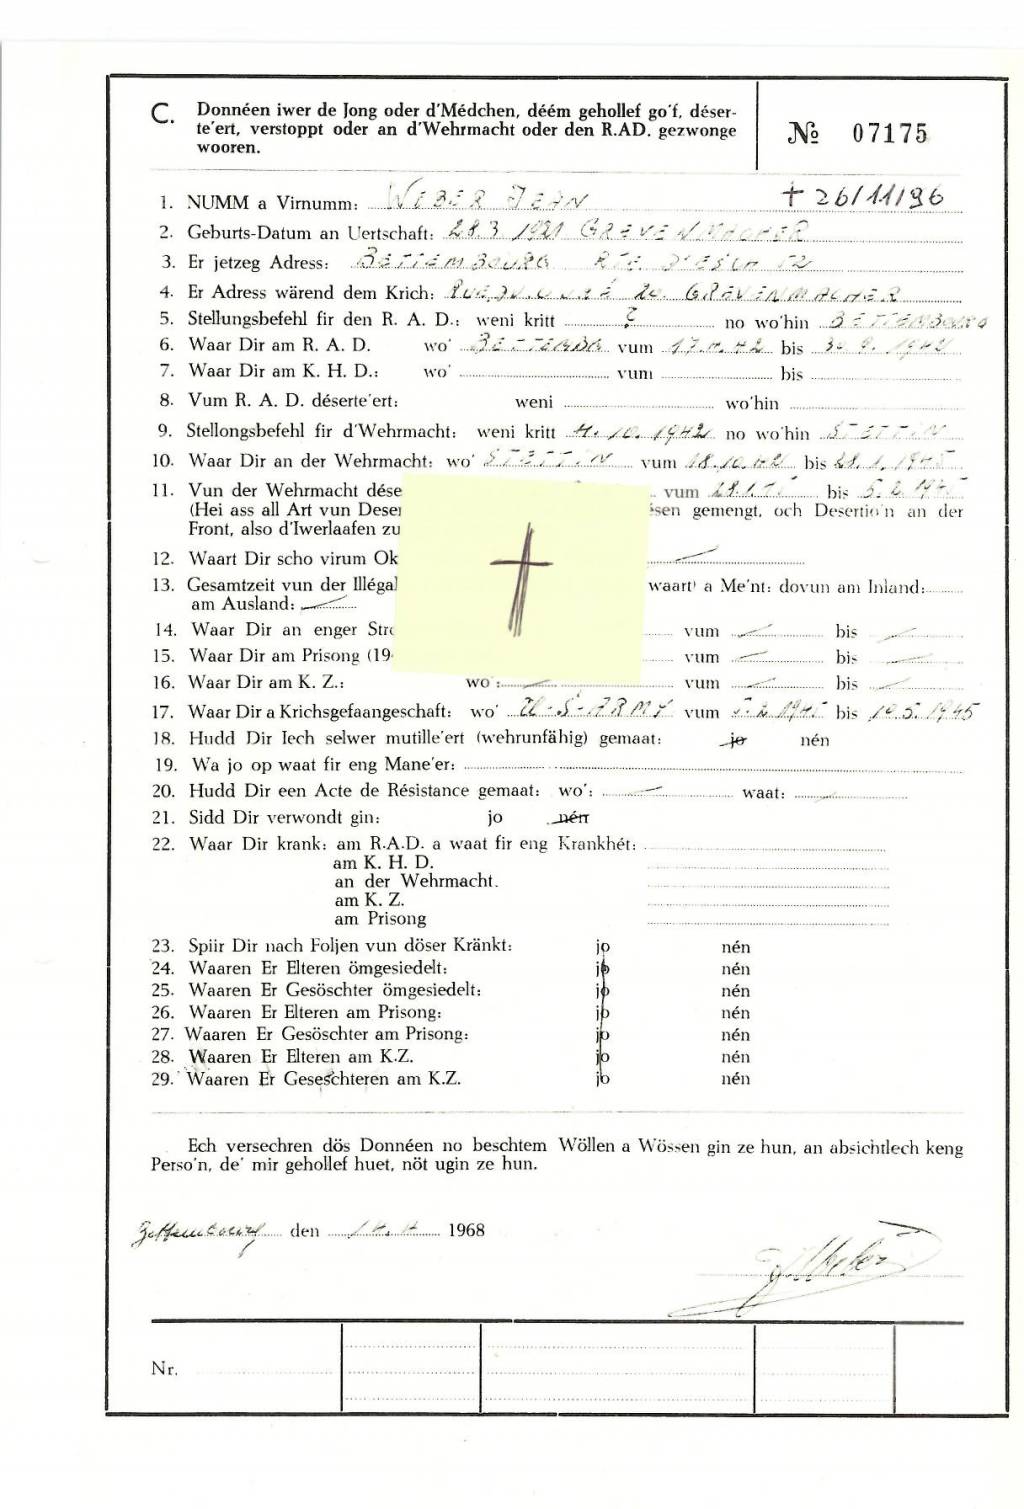 C. Donnéen iwer de Jong oder d'Médchen, déém gehollef go'f, déser-
te'ert, verstoppt oder an d'Wehrmacht oder den R.AD. gezwonge
wooren.
№ 07175
† 26/11/96
1. NUMM a Virnumm: WEBER JEAN
2. Geburts-Datum an Uertschaft: 28.3 1921 GREVENMACHER
3. Er jetzeg Adress: BETTEMBOURG RTE D'ESCH 52
4. Er Adress wärend dem Krich: 20. GREVENMACHER
5. Stellungsbefehl fir den R. A. D.: weni kritt ? no wo'hin BETTEMBOURG
6. Waar Dir am R. A. D. wo' BETTEMBG vum 17.4.42 bis 30.9.1942
7. Waar Dir am K. H. D.: wo' vum bis
8. Vum R. A. D. déserte'ert: weni wo'hin
9. Stellongsbefehl fir d'Wehrmacht: weni kritt 10.1942 no wo'hin STETTIN
10. Waar Dir an der Wehrmacht: wo' STETTIN vum 18.10.42 bis 28.1.1945
11. Vun der Wehrmacht dése vum 28.1.45 bis 5.2.1945
(Hei ass all Art vun Deser ësen gemengt, och Desertio'n an der
Front, also d'Iwerlaafen zu
12. Waart Dir scho virum Ok
13. Gesamtzeit vun der Illégal waart) a Me'nt: dovun am Inland:
am Ausland:
14. Waar Dir an enger Stro vum bis
15. Waar Dir am Prisong (19 vum bis
16. Waar Dir am K. Z.: wo': vum bis
17. Waar Dir a Krichsgefaangeschaft: wo' U-S-ARMY vum 5.2.1945 bis 10.5.1945
18. Hudd Dir Iech selwer mutille'ert (wehrunfähig) gemaat: jo nén
19. Wa jo op waat fir eng Mane'er:
20. Hudd Dir een Acte de Résistance gemaat: wo': waat:
21. Sidd Dir verwondt gin: jo nén
22. Waar Dir krank: am R.A.D. a waat fir eng Krankhét:
am K. H. D.
an der Wehrmacht.
am K. Z.
am Prisong
23. Spiir Dir nach Foljen vun döser Kränkt: jo nén
24. Waaren Er Elteren ömgesiedelt: jo nén
25. Waaren Er Gesöschter ömgesiedelt: jo nén
26. Waaren Er Elteren am Prisong: jo nén
27. Waaren Er Gesöschter am Prisong: jo nén
28. Waaren Er Elteren am K.Z. jo nén
29. Waaren Er Geseschteren am K.Z. jo nén
Ech versechren dös Donnéen no beschtem Wöllen a Wössen gin ze hun, an absichtlech keng
Perso'n, de' mir gehollef huet, nöt ugin ze hun.
Bettembourg den 14.4. 1968
J. Weber
Nr.